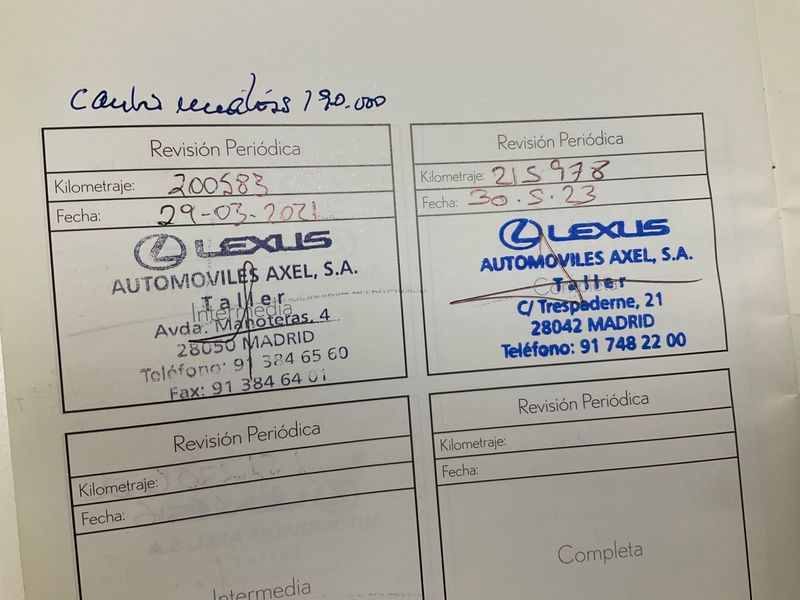 190.000
Revisión Periódica
Kilometraje: 200583
Fecha: 29-03-2021
LEXUS
AUTOMOVILES AXEL, S.A.
Taller
Intermedia
Avda. Manoteras, 4
28050 MADRID
Teléfono: 91 384 65 60
Fax: 91 384 64 01
Revisión Periódica
Kilometraje: 215978
Fecha: 30.5.23
LEXUS
AUTOMOVILES AXEL, S.A.
Taller
Completa
C/ Trespaderne, 21
28042 MADRID
Teléfono: 91 748 22 00
Revisión Periódica
Kilometraje:
Fecha:
Intermedia
Revisión Periódica
Kilometraje:
Fecha:
Completa